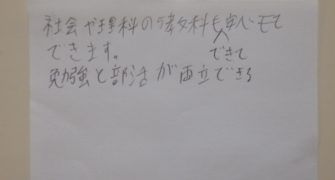 社会や理科の教科も
できます。 できて
勉強と部活が両立できる